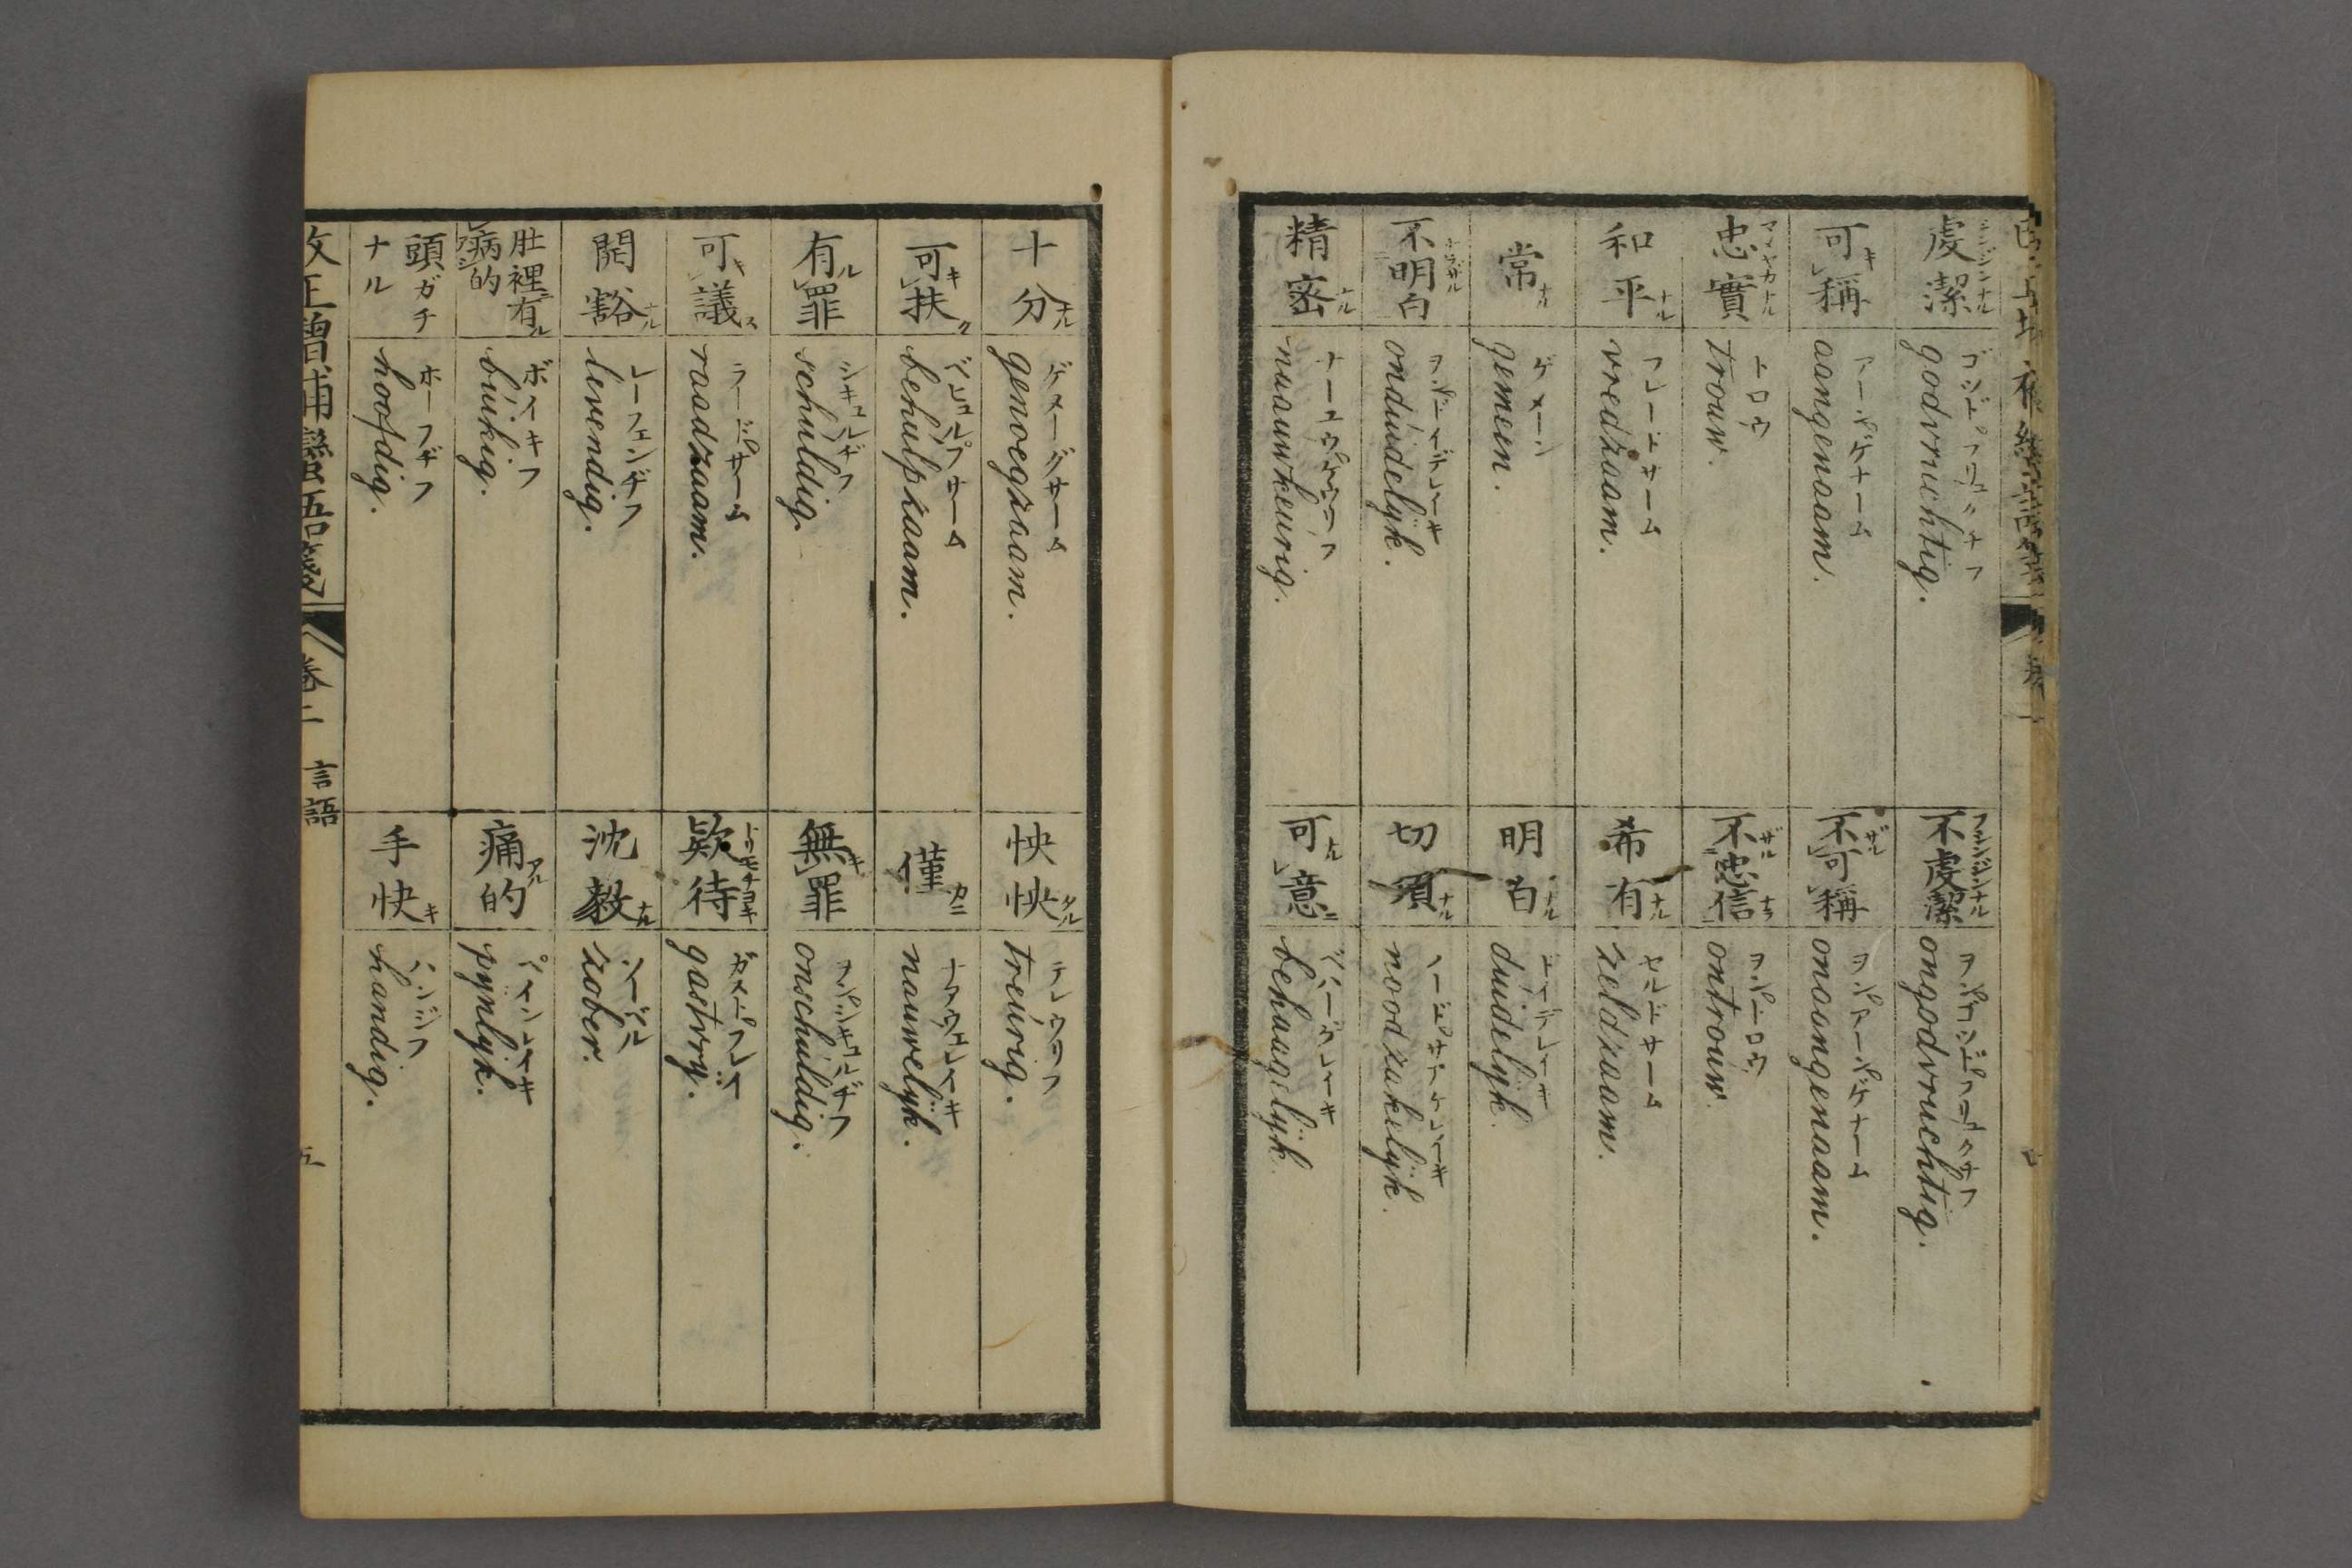 虔潔 シンジンナル
ゴッド゛フリュクチフ
godvruchtig.
不虔潔 フシンジンナル
ongodvruchtig.
可稱 キ
アーンゲナーム
aangenaam.
不可稱 ザル
onaangenaam.
忠實 マメヤカナル
トロウ
trouw.
不忠信 ザル ナラ
ヲントロウ
ontrouw.
和平 ナル
フレードサーム
vredzaam.
希有 ナル
セルドサーム
zeldzaam.
常 ナル
ゲメーン
gemein.
明白 ナル
ドイデレイキ
duidelÿk.
不明白
ヲンドイデレイキ
onduidelÿk.
切須 ナル
ノードサアケレイキ
noodzakelÿk.
精密 ナル
naauwkeurig.
可意
ベハーゲレイキ
behaagelÿk.
十分 ナル
ゲヌーグサーム
genoegzaam.
怏怏 タル
テレウリフ
treurig.
可扶 キ ク
ベヒュルプサーム
behulpzaam.
僅 カニ
ナァウェレイキ
nauwelÿk.
有罪 ル
シキュルヂフ
schuldig.
無罪 キ
ヲンシキュルヂフ
onschuldig.
可議 キ ス
ラードサーム
raadzaam.
欵待 トリモチヨキ
ガストフレイ
gastvrÿ.
開豁 ナル
レーフェンヂフ
levendig.
沈敎 ナル
ソーベル
zober.
肚裡有病的 ル
ボイキフ
buikig.
痛的 アル
ペインレイキ
pÿnlÿk.
頭ガチナル
ホーフヂフ
hoofdig.
手快 キ
ハンジフ
handig.
改正增補蠻語箋 卷二 言語 五